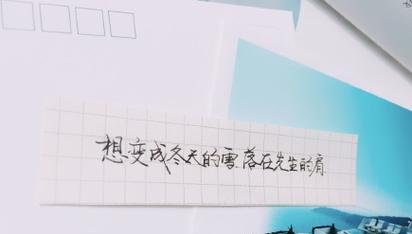 想变成冬天的雪落在先生的肩